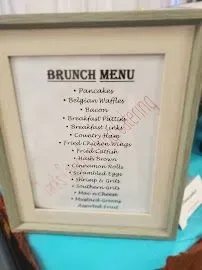 BRUNCH MENU
• Pancakes
• Belgian Waffles
• Bacon
• Breakfast Patties
• Breakfast Links
• Country Ham
• Fried Chicken Wings
• Fried Catfish
• Hash Brown
• Cinnamon Rolls
• Scrambled Eggs
• Shrimp & Grits
• Southern Grits
• Mac n Cheese
• Mustard Greens
• Assorted Fruit